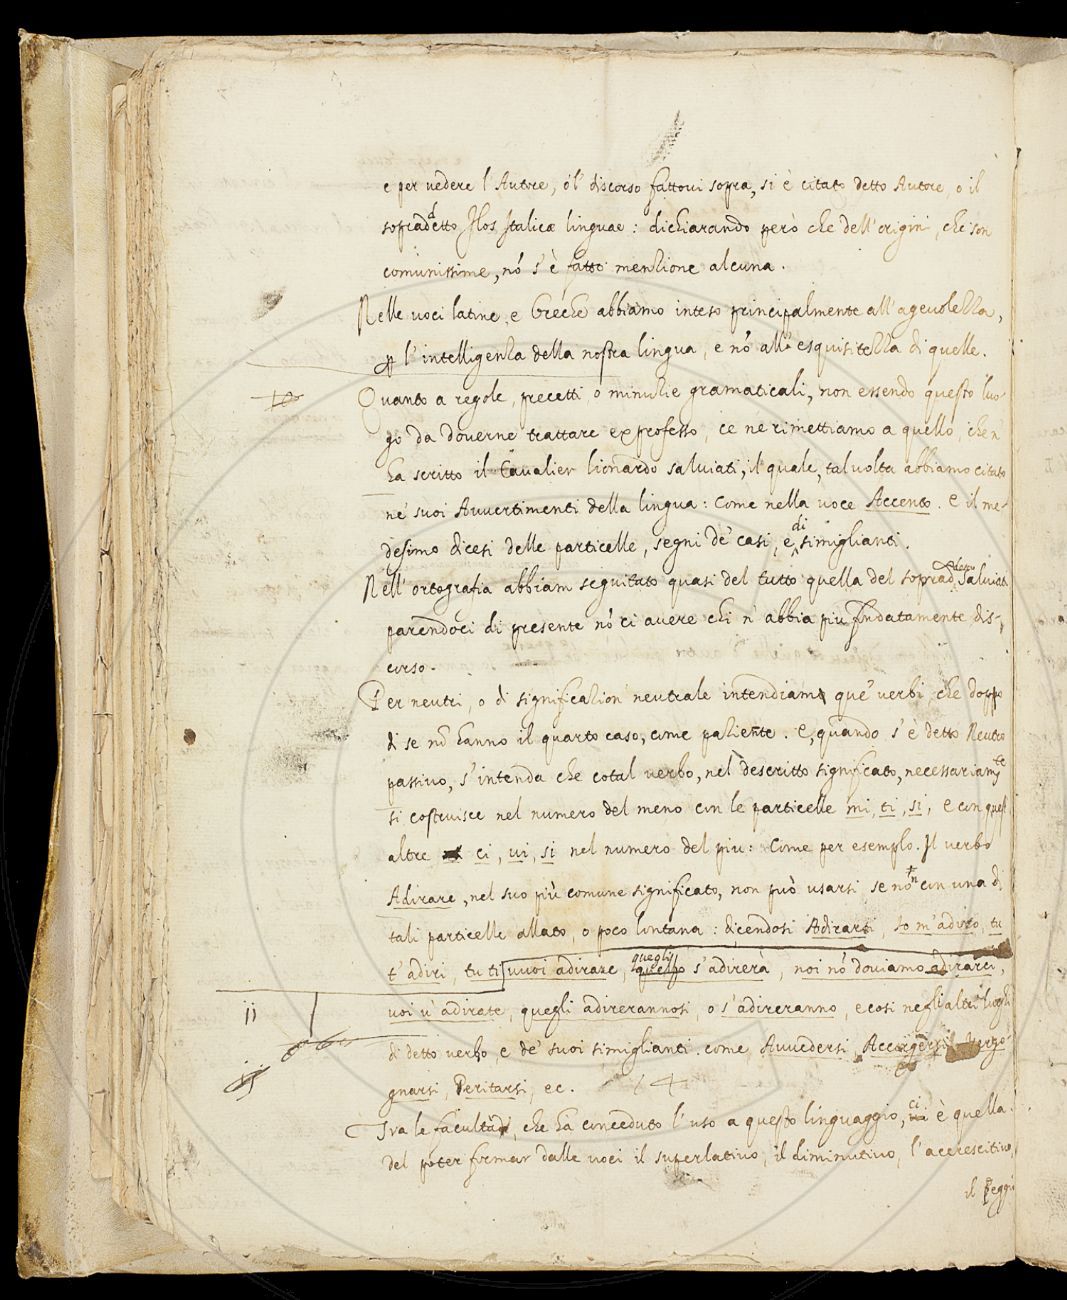 e per vedere l'Autore, o'l discorso fattovi sopra, si è citato detto Autore, o il
sopradetto Flos Italicæ linguae: dichiarando però che dell'origini, che son
comunissime, nō s'è fatto menzione alcuna.
Nelle voci latine, e Greche abbiamo inteso principalmente all'agevolezza,
ꝑ l'intelligenza della nostra lingua, e nō all'esquisitezza di quelle.
10
Quanto a regole, precetti, o minuzie gramaticali, non essendo questo luo-
go da doverne trattare exprofesso, ce ne rimettiamo a quello, che n
ha scritto il Cavalier lionardo salviati, il quale, talvolta abbiamo citato
ne' suoi Avvertimenti della lingua: Come nella voce Accento. E il me-
desimo dicesi delle particelle, segni de' casi, e di simiglianti.
Nell'ortografia abbiam seguitato quasi del tutto quella del sopradetto Salviati
parendoci di presente nō ci avere chi n'abbia piu fondatamente dis-
corso.
Per neutri, o di significazion neutrale intendiamo que' verbi che doppo
di se nō hanno il quarto caso, come paziente. E, quando s'è detto Neutro
passivo, s'intenda che cotal verbo, nel descritto significato, necessariamte
si costruisce nel numero del meno con le particelle mi, ti, si, e con quest
altre ci, vi, si nel numero del piu: Come per esempio. Il verbo
Adirare, nel suo più comune significato, non può usarsi se non con una di
tali particelle allato, o poco lontana: dicendosi Adirarsi, Io m'adiro, tu
t'adiri, tu ti vuoi adirare, quegli s'adirerà, noi nō doviamo adirarci,
11
voi v'adirate, quegli adirerannosi, o s'adireranno, e cosi negli altri luoghi
di detto verbo, e de' suoi simiglianti. come Avvedersi Accorgersi Vergo-
gnarsi, Peritarsi, ec.
Tra le facultadi, che ha conceduto l'uso a questo linguaggio, ci è quella
del poter formar dalle voci il superlativo, il diminutivo, l'accrescitivo,
il Peggi